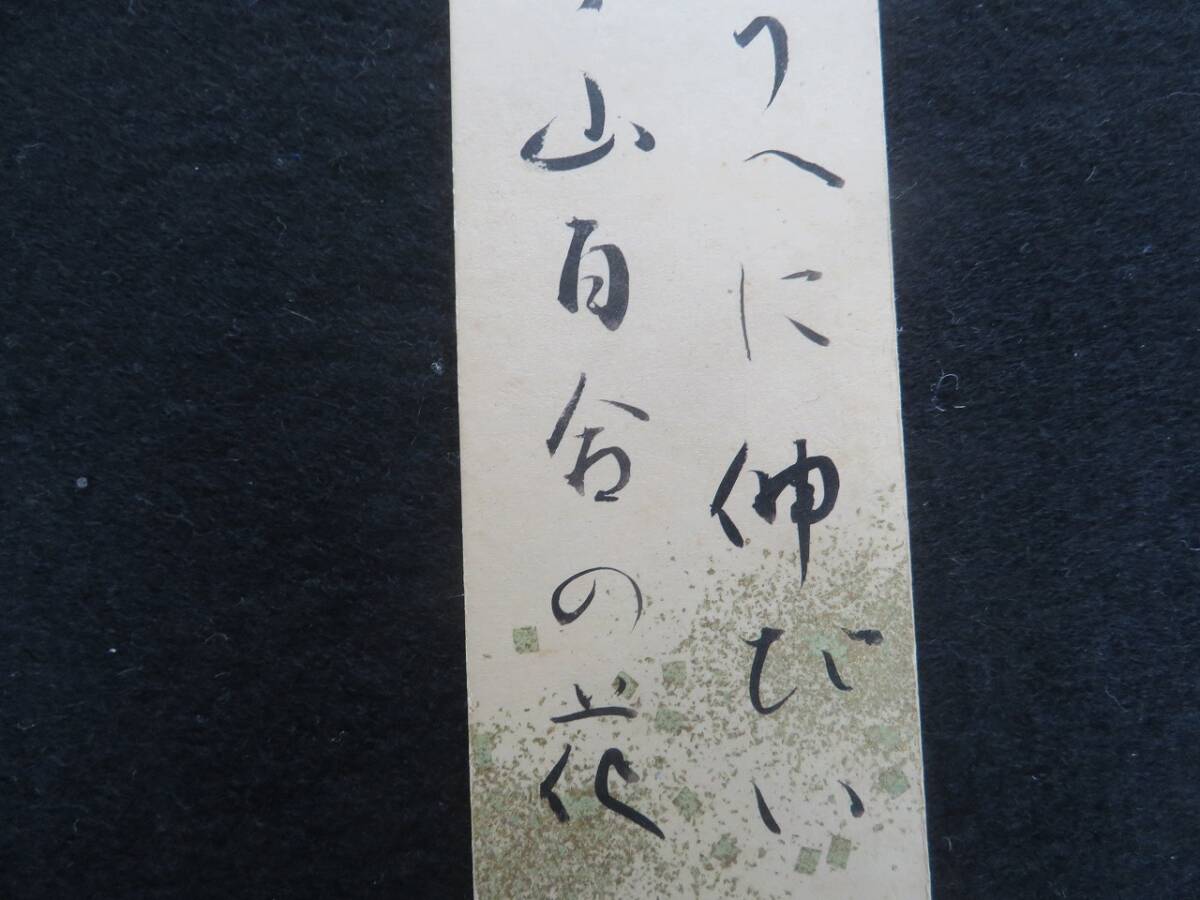 うへに伸びい
山百合の花